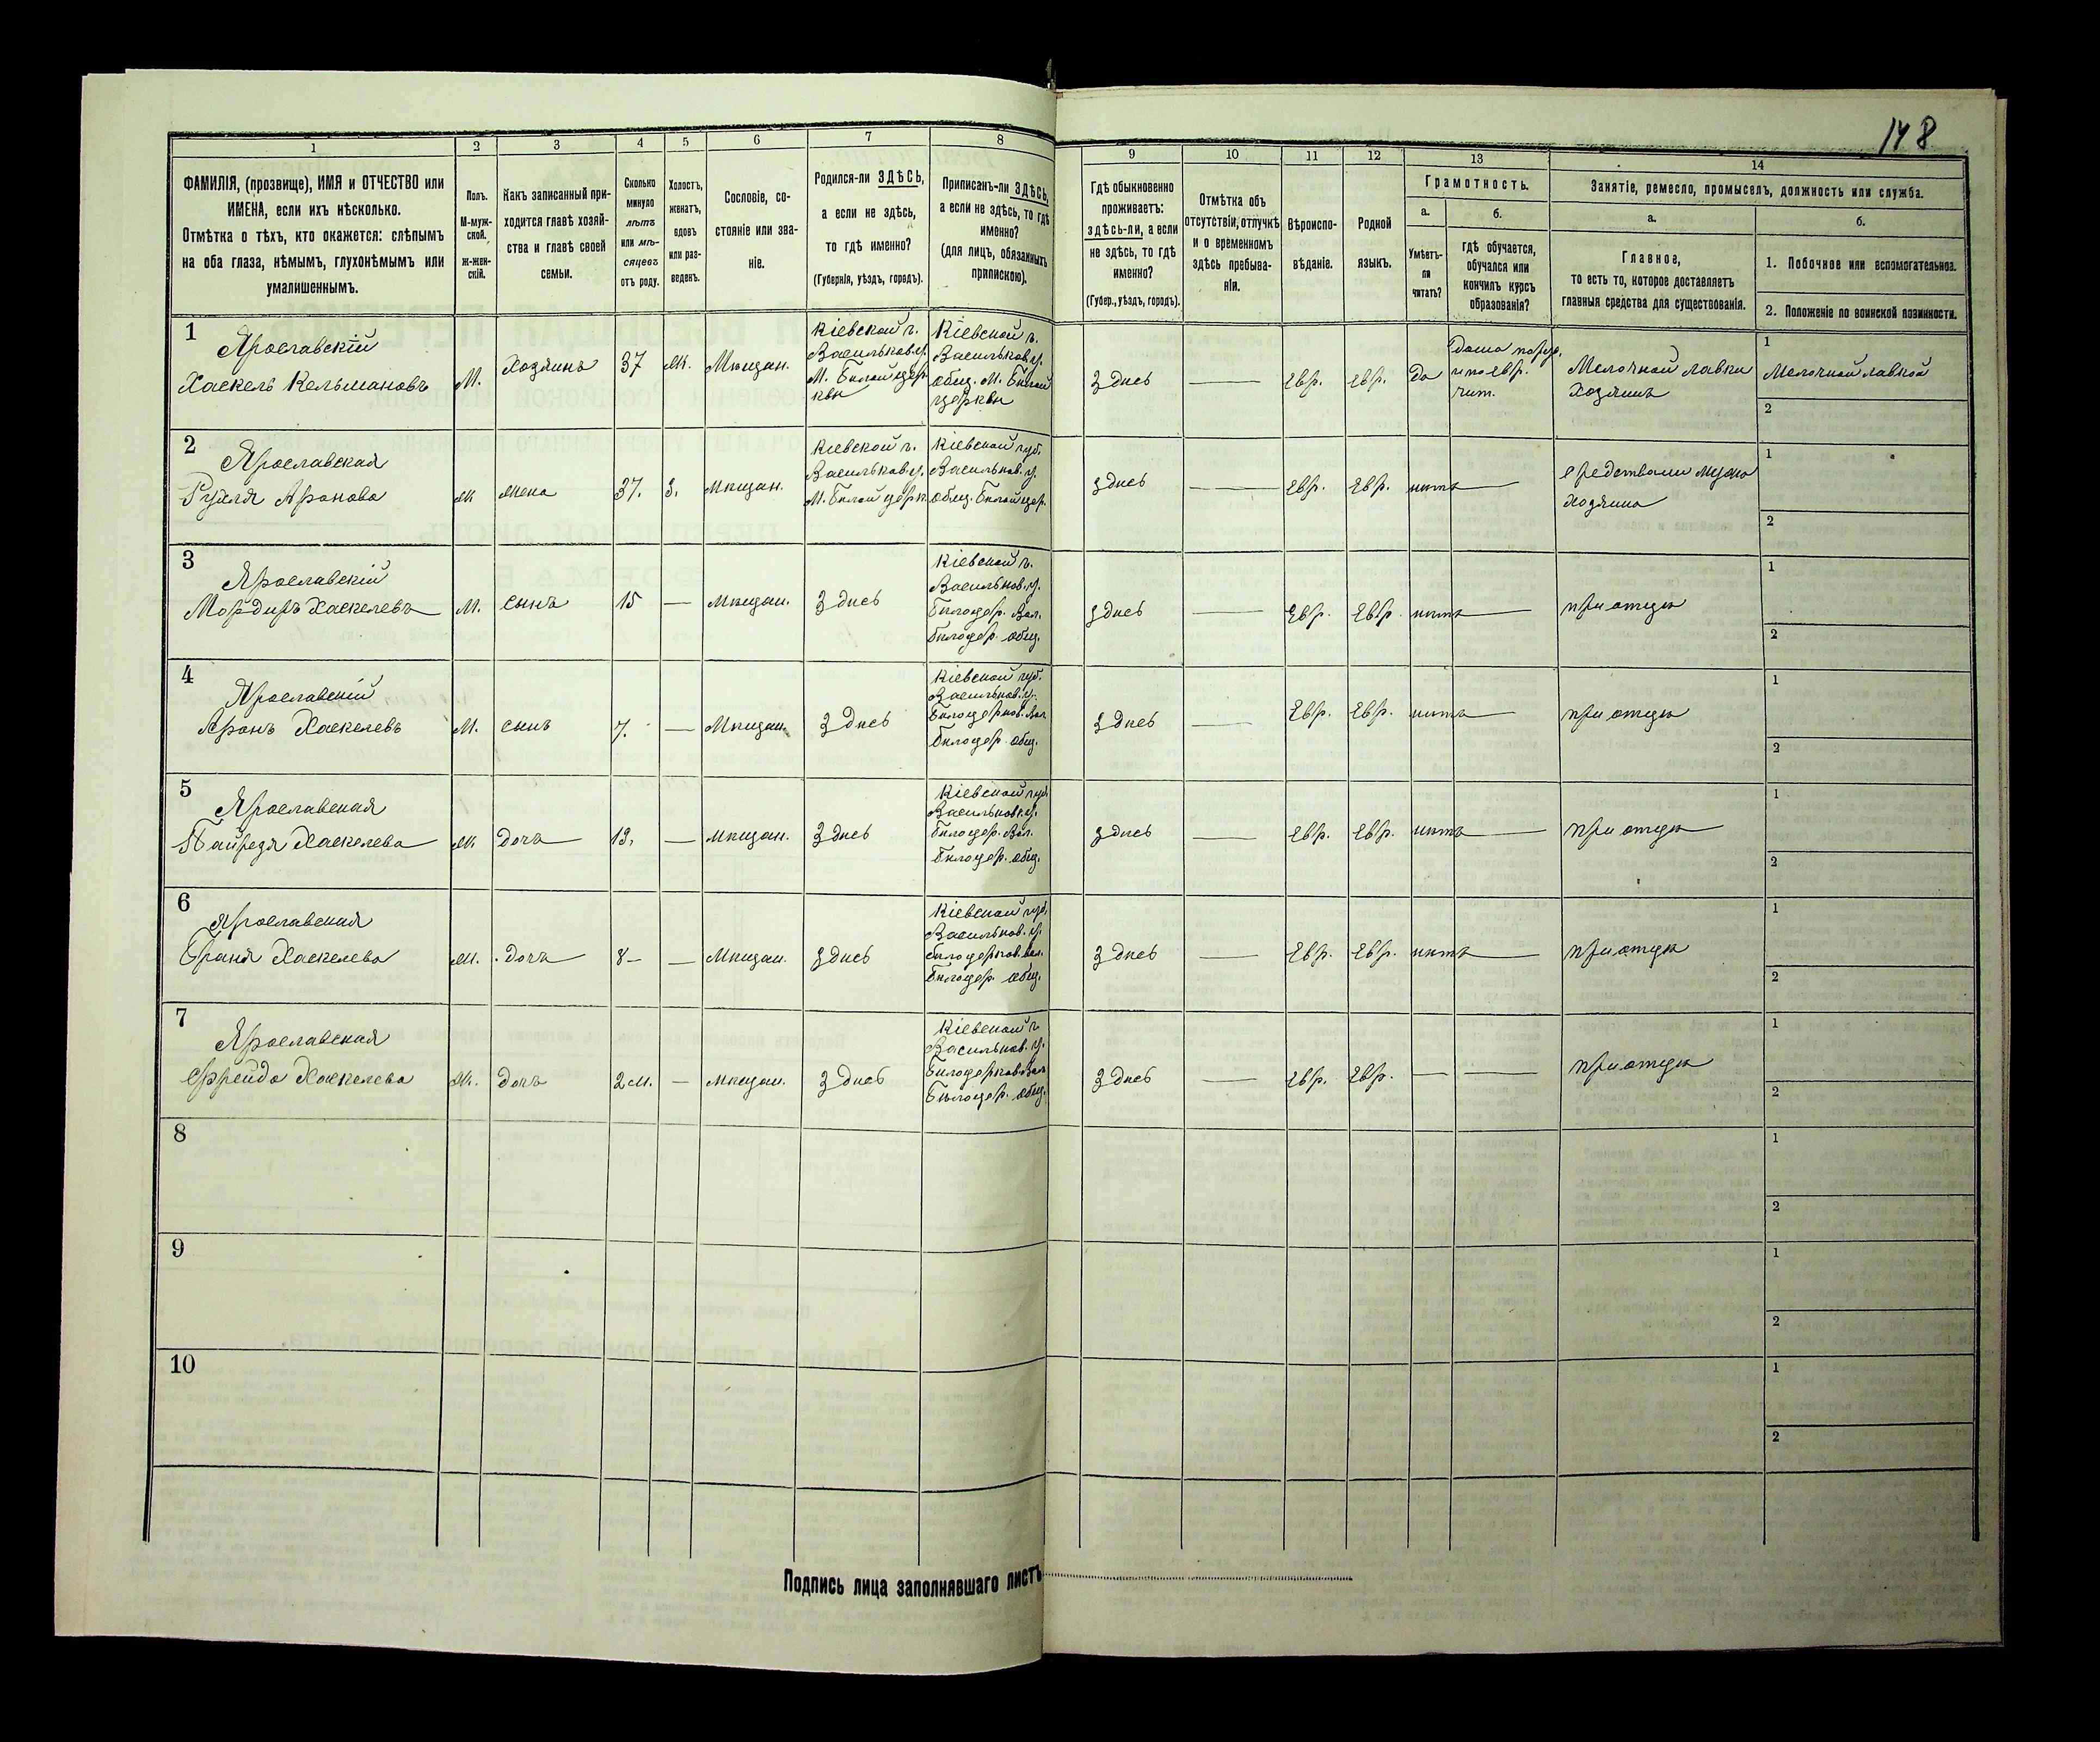 148
1
2
3
4
5
6
7
8
9
10
11
12
13
14
ФАМИЛІЯ, (прозвище), ИМЯ и ОТЧЕСТВО или
ИМЕНА, если ихъ нѣсколько.
Отмѣтка о тѣхъ, кто окажется: слѣпымъ
на оба глаза, нѣмымъ, глухонѣмымъ или
умалишеннымъ.
Полъ.
М-муж-
ской.
ж-жен-
скій.
Какъ записанный при-
ходится главѣ хозяй-
ства и главѣ своей
семьи.
Сколько
минуло
лѣтъ
или мѣ-
сяцевъ
отъ роду.
Холостъ,
женатъ,
вдовъ
или раз-
веденъ.
Сословіе, со-
стояніе или зва-
ніе.
Родился-ли ЗДѢСЬ,
а если не здѣсь,
то гдѣ именно?
(Губернія, уѣздъ, городъ).
Приписанъ-ли ЗДѢСЬ,
а если не здѣсь, то гдѣ
именно?
(для лицъ, обязанныхъ
припискою).
Гдѣ обыкновенно
проживаетъ:
здѣсь-ли, а если
не здѣсь, то гдѣ
именно?
(Губер., уѣздъ, городъ).
Отмѣтка объ
отсутствіи, отлучкѣ
и о временномъ
здѣсь пребыва-
ніи.
Вѣроиспо-
вѣданіе.
Родной
языкъ.
Грамотность.
а.
Умѣетъ-
ли
читать?
б.
гдѣ обучается,
обучался или
кончилъ курсъ
образованія?
Занятіе, ремесло, промыселъ, должность или служба.
а.
Главное,
то есть то, которое доставляетъ
главныя средства для существованія.
б.
1. Побочное или вспомогательное.
2. Положеніе по воинской повинности.
1
Ярославскій
Хаскель Кельмановъ
М.
Хозяинъ
37
Ж.
Мѣщан.
Кіевской г.
Васильков. у.
М. Бѣлой Цер-
кви
Кіевской г.
Васильков. у.
общ. М. Бѣлой
Церкви
Здѣсь
Евр.
Евр.
да
Дома
и по евр.
чит.
Мелочной лавки
Хозяинъ
1
Мелочной лавкой
2
2
Ярославская
Рухля Аронова
Ж
Жена
37.
З.
Мѣщан.
Кіевской г.
Васильков. у.
М. Бѣлой Церк.
Кіевской губ.
Васильков. у.
общ. Бѣлой Цер.
Здѣсь
Евр.
Евр.
нѣтъ
средствами мужа
хозяина
1
2
3
Ярославскій
Хаскелевъ
М.
сынъ
15
Мѣщан.
Здѣсь
Кіевской г.
Васильков. у.
Бѣлоцер. Вол.
Бѣлоцер. общ.
Здѣсь
Евр.
Евр.
нѣтъ
при отцѣ
1
2
4
Ярославскій
Аронъ Хаскелевъ
М.
сынъ
7.
Мѣщан.
Здѣсь
Кіевской губ.
Васильков. у.
Бѣлоцерков. Вол.
Бѣлоцер. общ.
Здѣсь
Евр.
Евр.
нѣтъ
при отцѣ
1
2
5
Ярославская
Хаскелева
Ж
Дочь
13.
Мѣщан.
Здѣсь
Кіевской губ.
Васильков. у.
Бѣлоцер. Вол.
Бѣлоцер. общ.
Здѣсь
Евр.
Евр.
нѣтъ
при отцѣ
1
2
6
Ярославская
Браня Хаскелева
Ж.
Дочь
8
Мѣщан.
Здѣсь
Кіевской губ.
Васильков. у.
Бѣлоцерков. вол.
Бѣлоцер. общ.
Здѣсь
Евр.
Евр.
нѣтъ
при отцѣ
1
2
7
Ярославская
Фрейда Хаскелева
Ж.
Дочь
2 м.
Мѣщан.
Здѣсь
Кіевской г.
Васильков. у.
Бѣлоцерков. Вол.
Бѣлоцер. общ.
Здѣсь
Евр.
Евр.
при отцѣ
1
2
8
1
2
9
1
2
10
1
2
Подпись лица заполнявшаго листъ